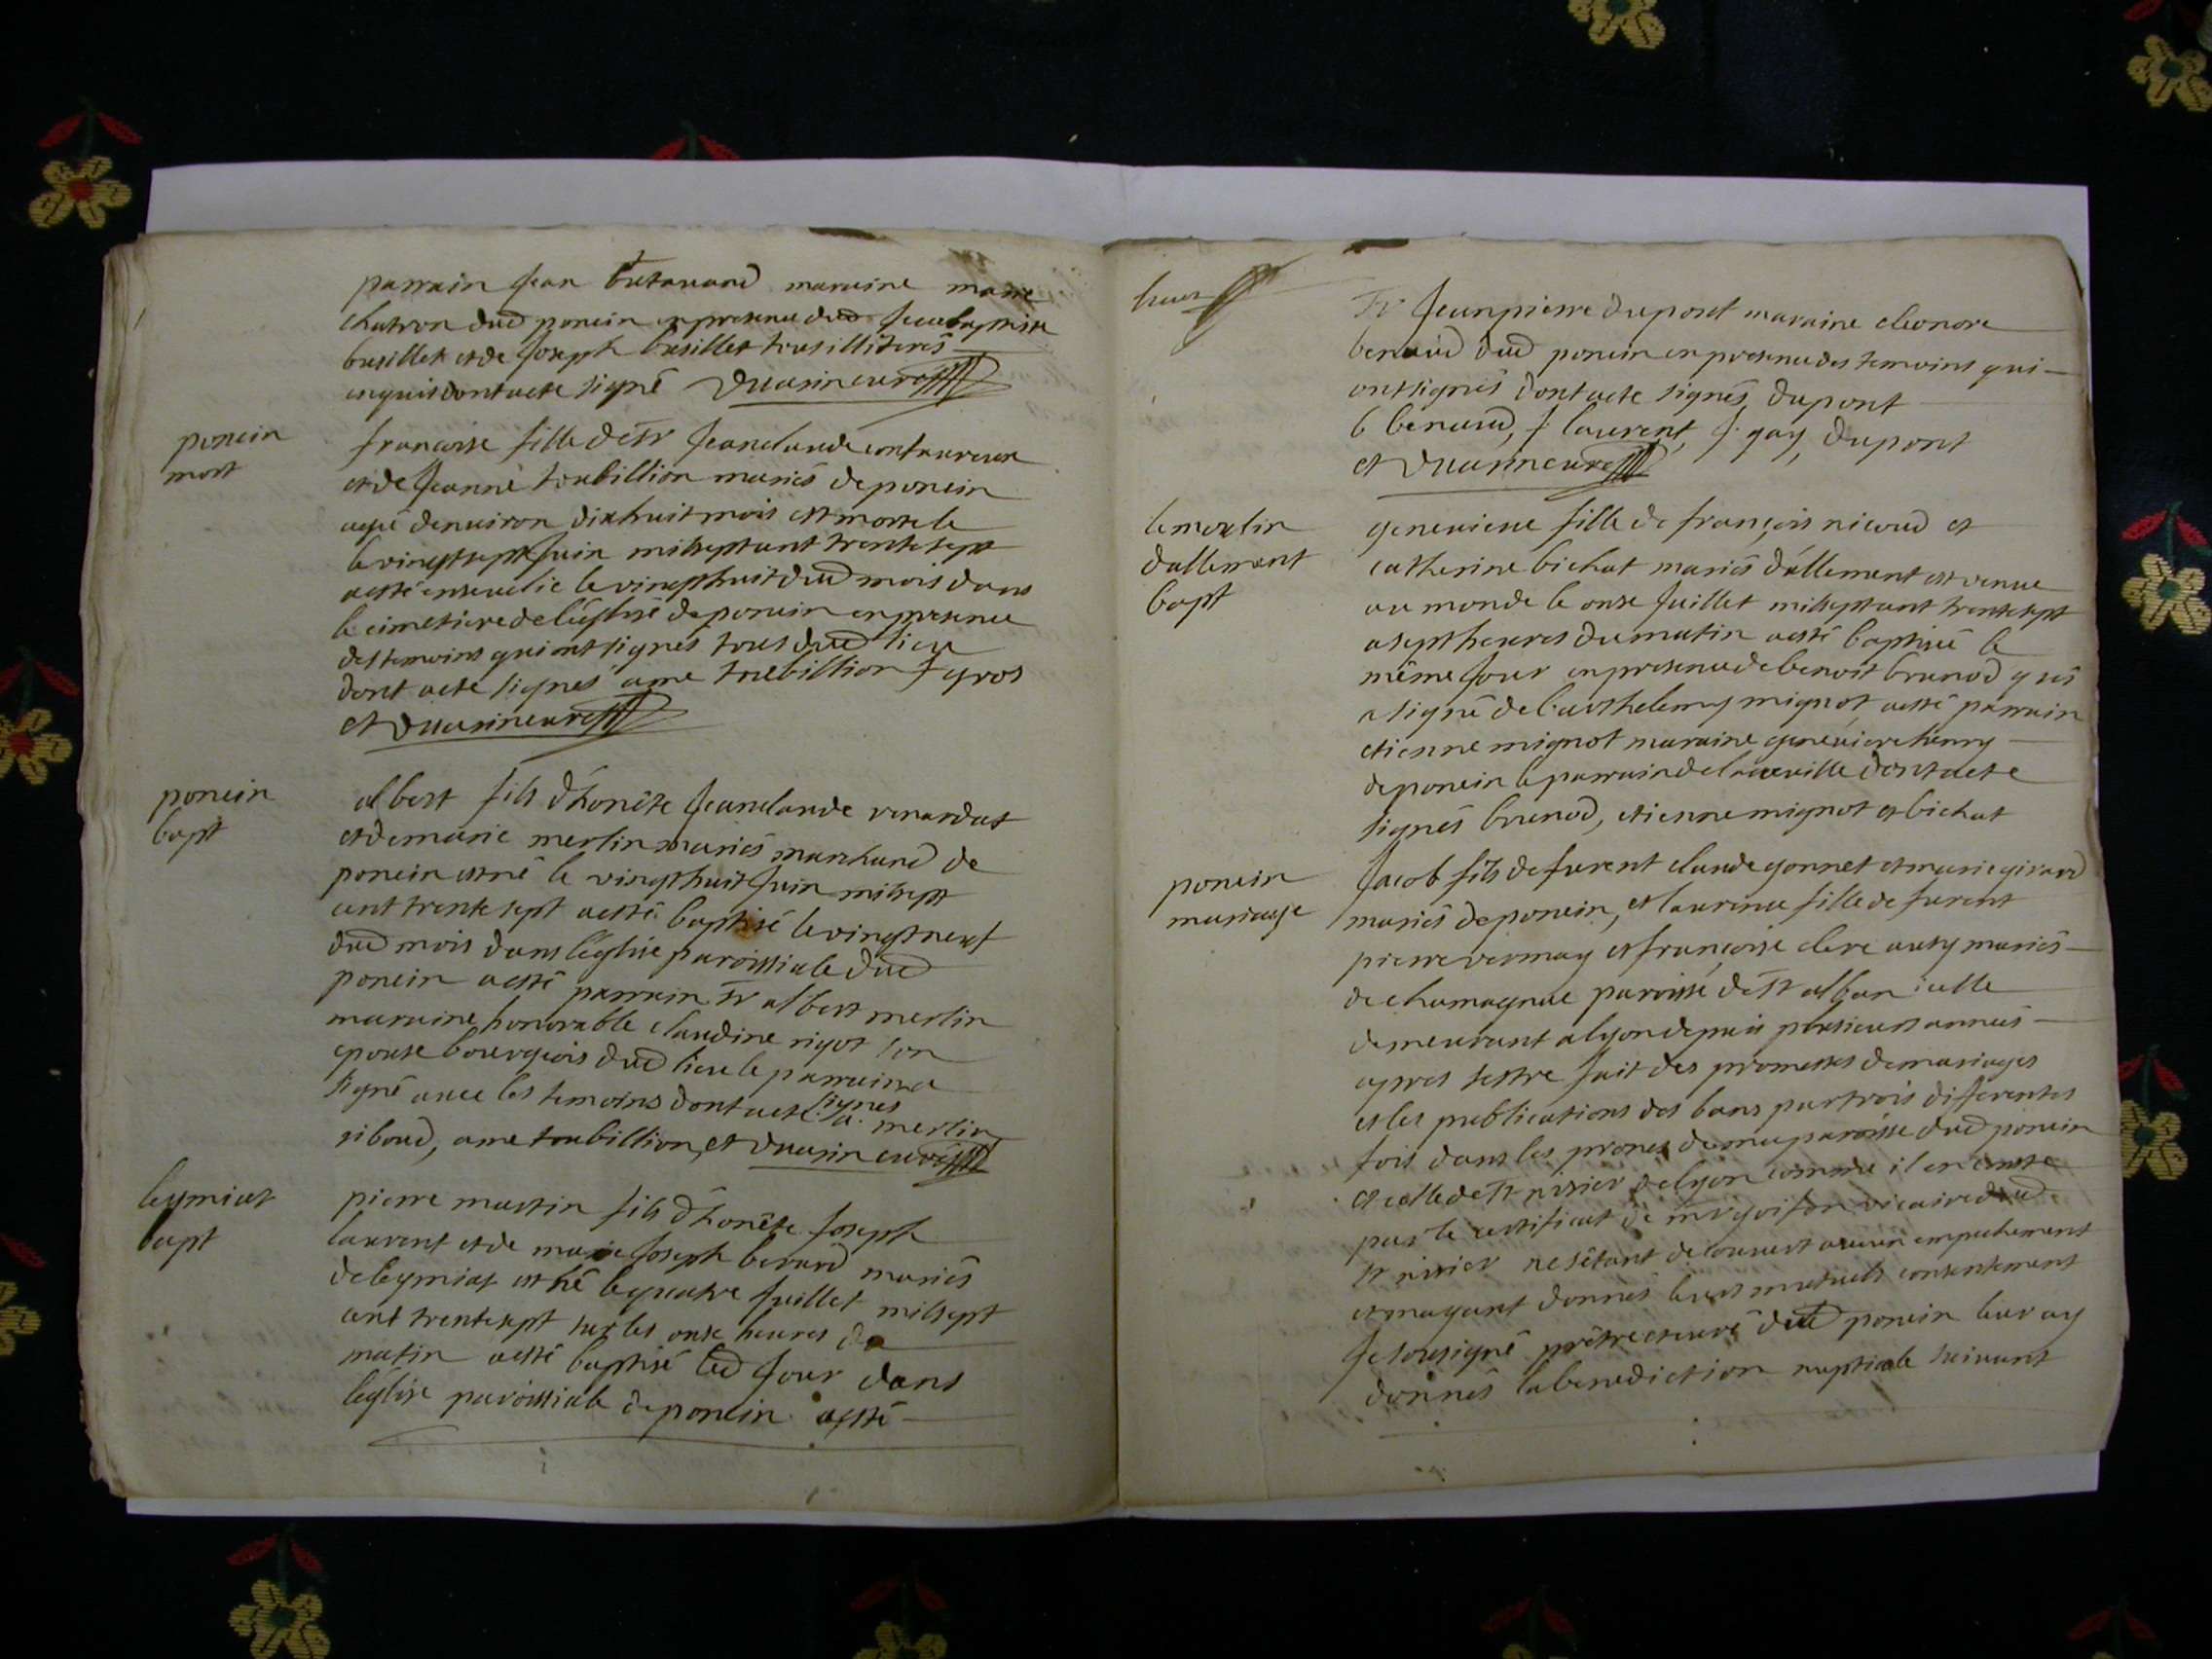 parrain Jean marraine marie
chatron dud poncin en presence dud Jean baptiste
busillet et de Joseph busillet tous illiterés
enquis dont acte signé Duarin curé
poncin
mort
francoise fille de Sr Jeanclaude
et de Jeanne toubillion mariés de poncin
agée denviron dixhuit mois est morte le
le vingtsept Juin milseptcent trentesept
aesté ensevelie le vingthuit dud mois dans
le cimetiere de léglise de poncin en presence
des temoins qui ont signés tous dud lieu
dont acte signés ame toubillion f gros
et Duarin curé
poncin
bapt
albert fils dhonête Jeanclaude renardat
et de marie merlin mariés marchand de
poncin est né le vingthuit Juin milsept
cent trente sept aesté baptisé le vingtneuf
dud mois dans léglise paroissiale dud
poncin aesté parrain Sr albert merlin
maraine honorable claudine rigot son
epouse bourgeois dud lieu le parrain a
signé avec les temoins dont acte signés a. merlin
riboud, ame toubillion, et Duarin curé
leymiat
bapt
pierre martin fils dhonête Joseph
laurent et de marie Joseph berard mariés
de leymiat est né le quatre Juillet milsept
cent trentesept sur les onze heures du
matin aesté baptisé led Jour dans
léglise paroissiale de poncin aesté
Sr Jeanpierre dupont maraine eleonore
benaud dud poncin en presence des temoins qui
ont signés dont acte signés, dupont
b benaud, f. laurent, f. gay, dupont
et Duarin curé
le moulin
dallement
bapt
genevieve fille de françois nicoud et
catherine bichat mariés dallement est venue
au monde le onze Juillet milseptcent trentesept
a sept heures du matin aesté baptisée le
même Jour en presence de benoit brunod qui
a signé de barthelemy mignot, aesté parrain
etienne mignot maraine genevieve henry
de poncin le parrain de dont acte
signés brunod, etienne mignot et bichat
poncin
mariage
Jacob fils de furent claude gonnet et marie girard
mariés de poncin, et laurence fille de furent
pierre vermay et françoise clere ausy mariés
de chamagnat paroisse de St alban icelle
demeurant a lyon depuis plusieurs années
apres sestre fait des promesses de mariages
et les publications des bans par trois differentes
fois dans les prones de ma paroisse dud poncin
et celle de St nisier de lyon comme il en conste
par le certificat de mr vicaire dud
St nisier ne sêtant decouvert aucun empechement
et mayant donnés leurs mutuels consentement
Je sousigné prêtre et curé dud poncin leur ay
donnés la benediction nuptiale suivant